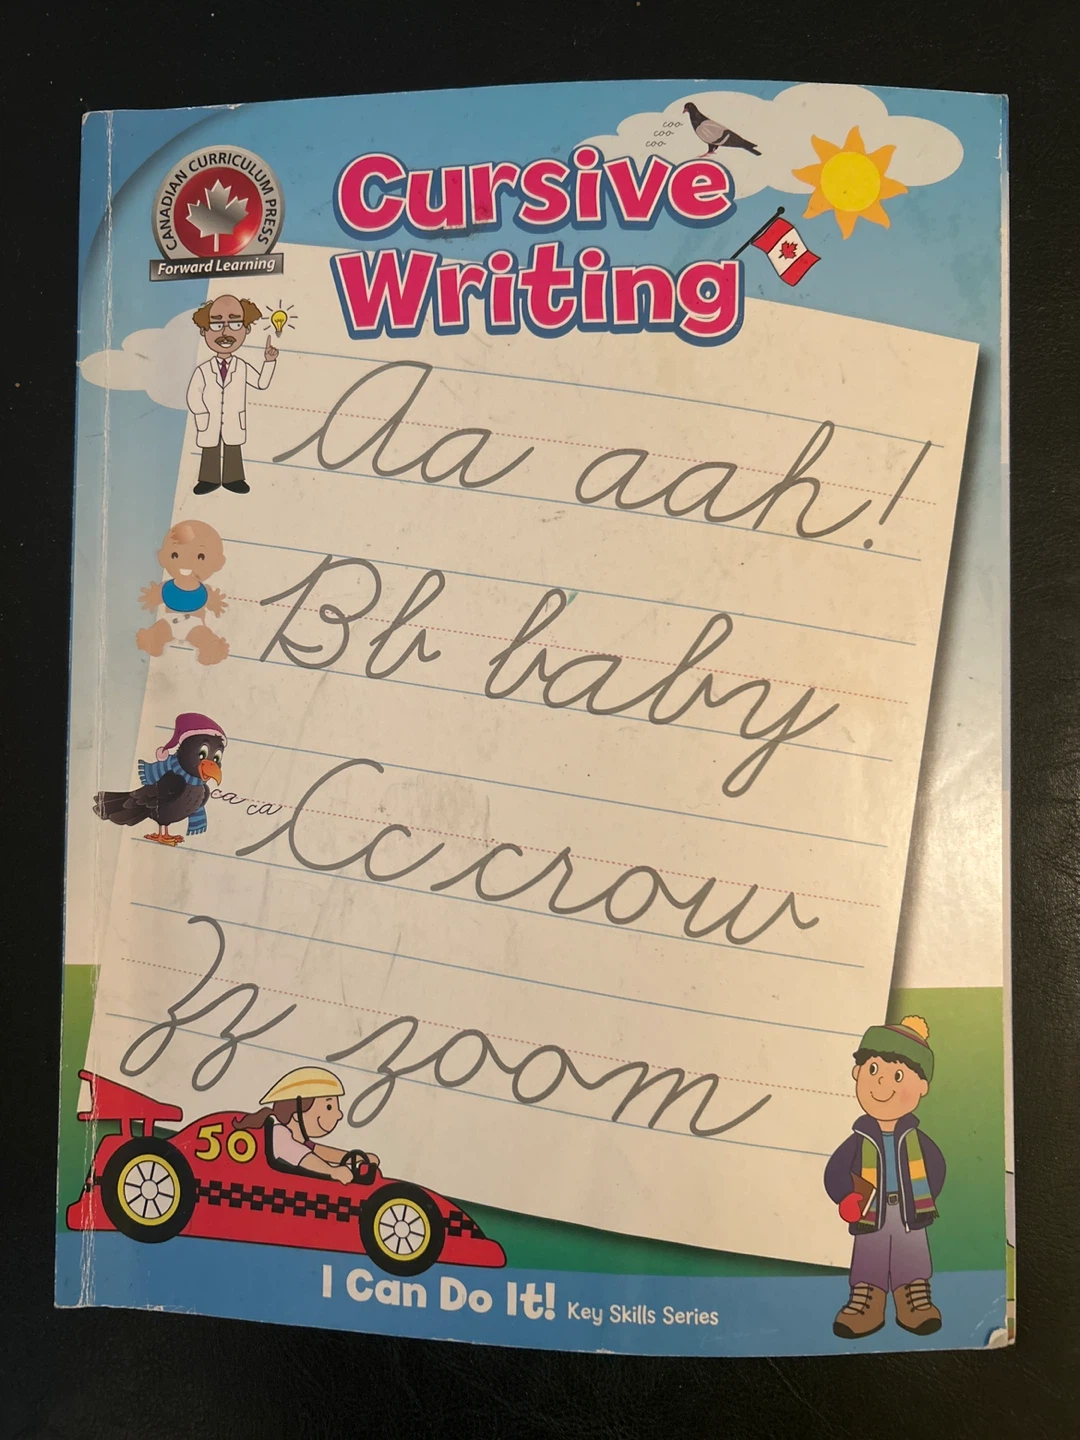 coo
coo
coo
CANADIAN CURRICULUM PRESS
Forward Learning
Cursive
Writing
Aa aah!
Bb baby
ca ca
Cc crow
Zz zoom
50
I Can Do It! Key Skills Series